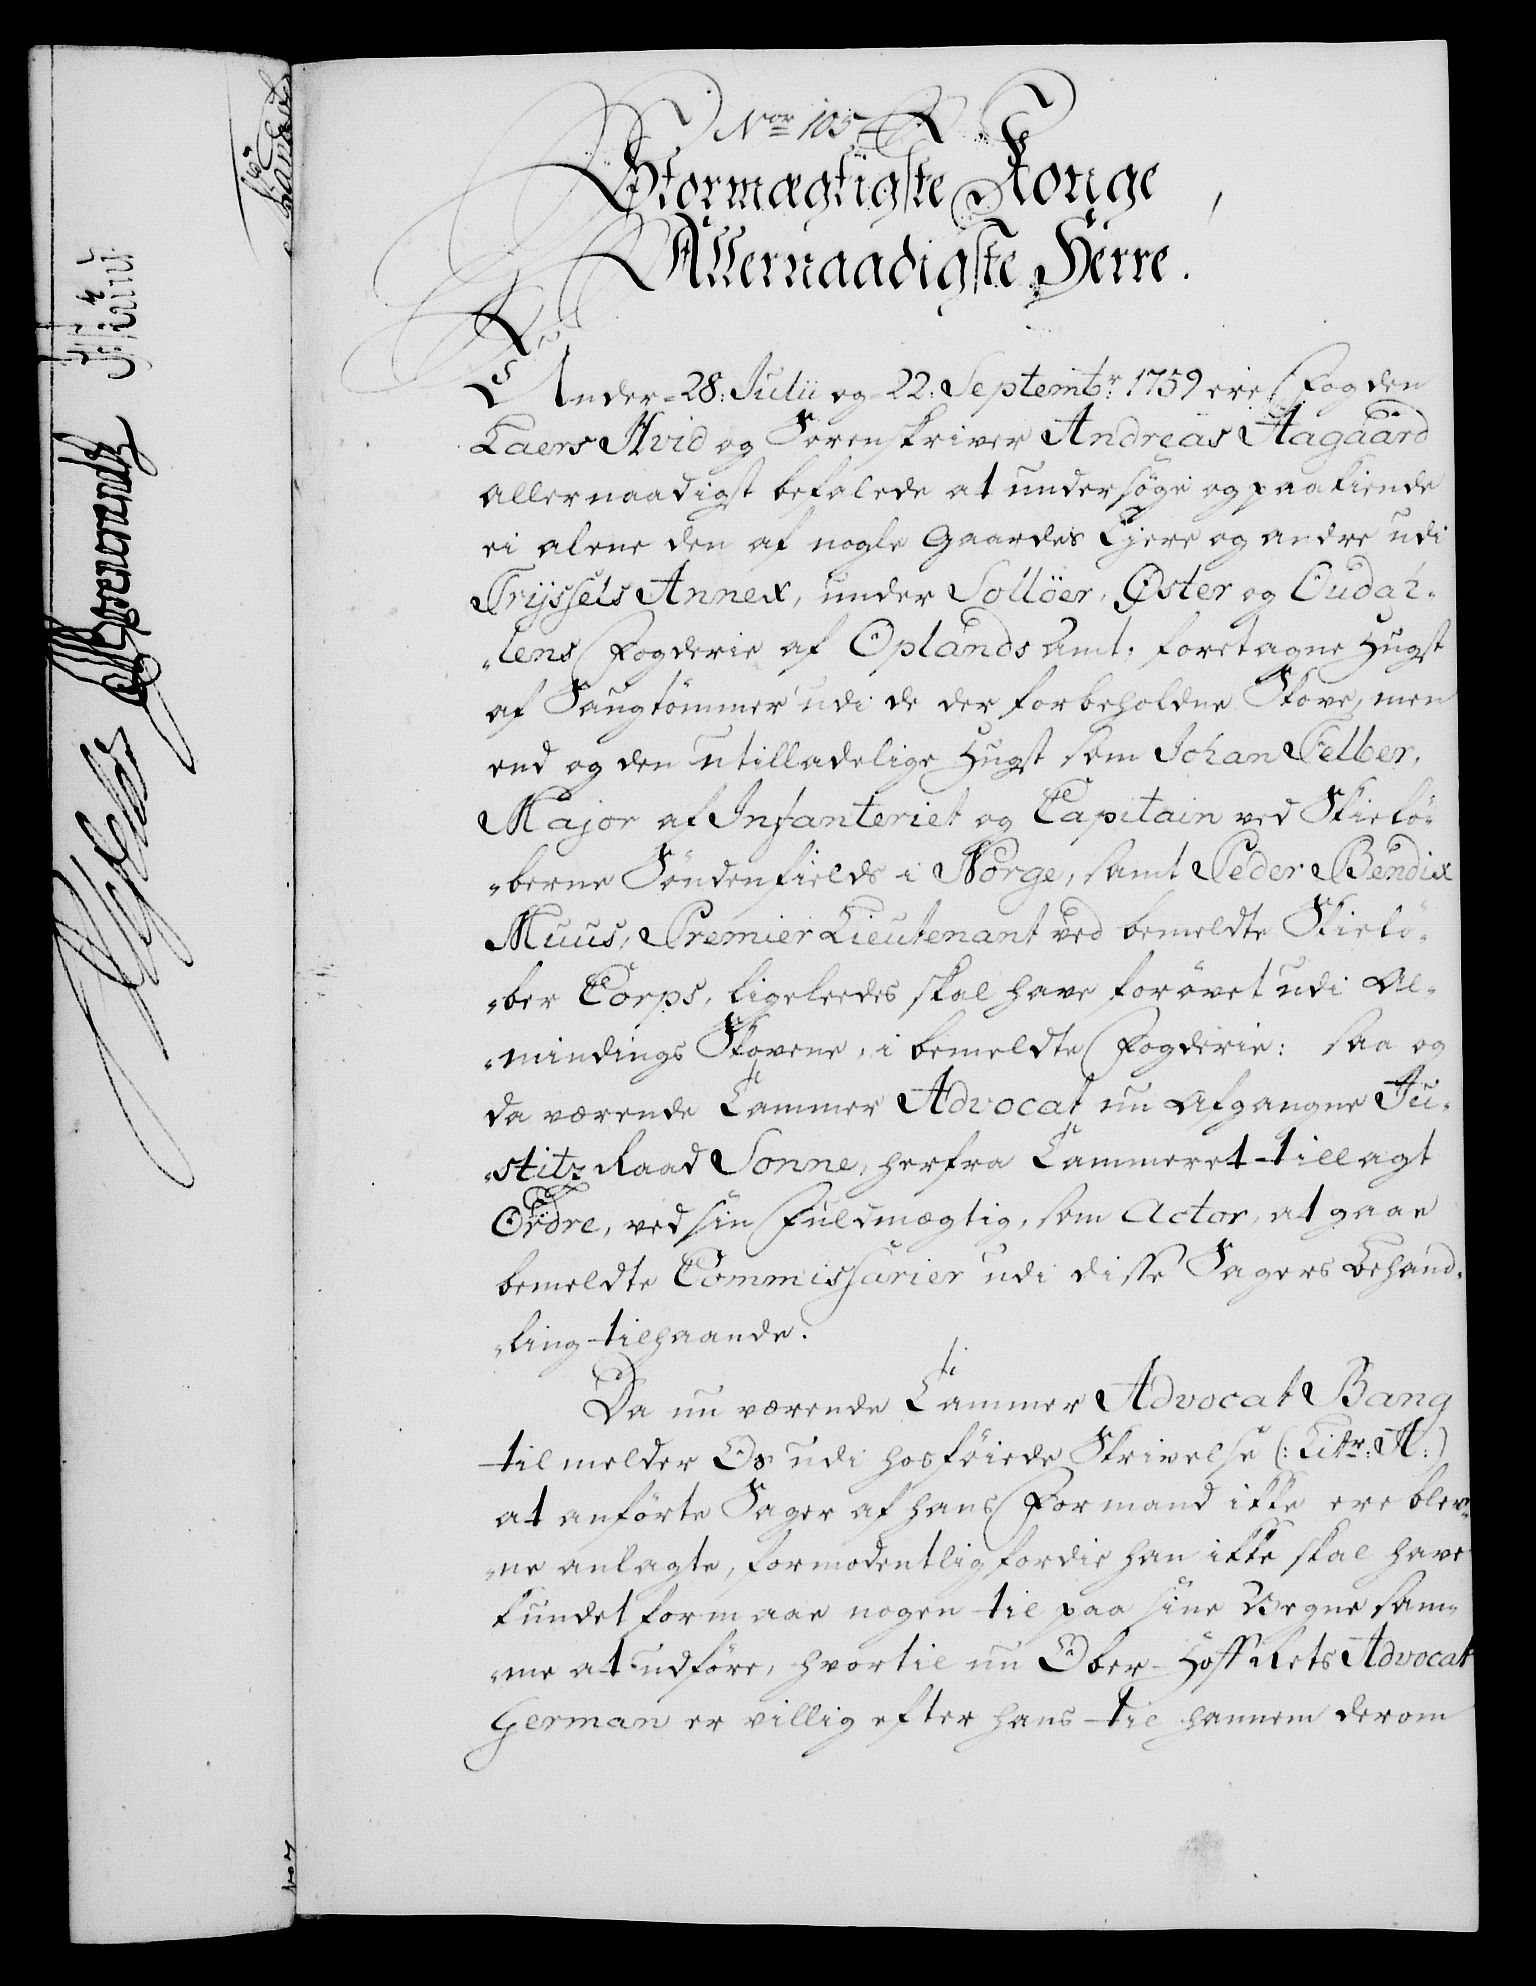 Nor 105
Stormægtigste Konge,
Allernaadigste Herre.
Under 28: Julii og 22: Septembr: 1759 ere Fogden
Laers Hvid og Sorenskriver Andreas Aagaard
allernaadigst befalede at undersöge og paakiende
ei alene den af nogle Gaardes Ejere og andre udi
Tryssels Annex, under Sollöer, Öster og Oudah-
-lens Fogderie af Oplands Amt, foretagne Hugst
af Saugtömmer udi de der forbeholdne Skove, men
end og den utilladelige Hugst som Johan Pelber,
Major af Infanteriet og Capitain ved Skielö-
-berne Söndenfields i Norge, samt Peder Bendix
Muus, Premier Lieutenant ved bemeldte Skielö-
-ber Corps, ligeleedes skal have foröved udi Al-
-mindings Skovene, i bemeldte Fogderie: saa og
da værende Cammer Advocat nu afgangne Ju-
-stitz Raad Sonne, herfra Cammeret tillagt
Ordre, ved sin Fuldmægtig, som Actor, at gaae
bemeldte Commissarier udi disse Sagers Behand-
-ling tilhaande.
Da nu værende Cammer Advocat Bang
tilmelder Os udi hosföiede Skrivelse (: Litr: A:)
at anförte Sager af hans Formand ikke ere blev-
-ne anlagte, formodentlig fordie han ikke skal have
kundet formaae nogen til paa sine Vegne sam-
-me at udföre, hvortil nu Ober-Hoff Rets Advocat
German er villig efter hans til hannem derom